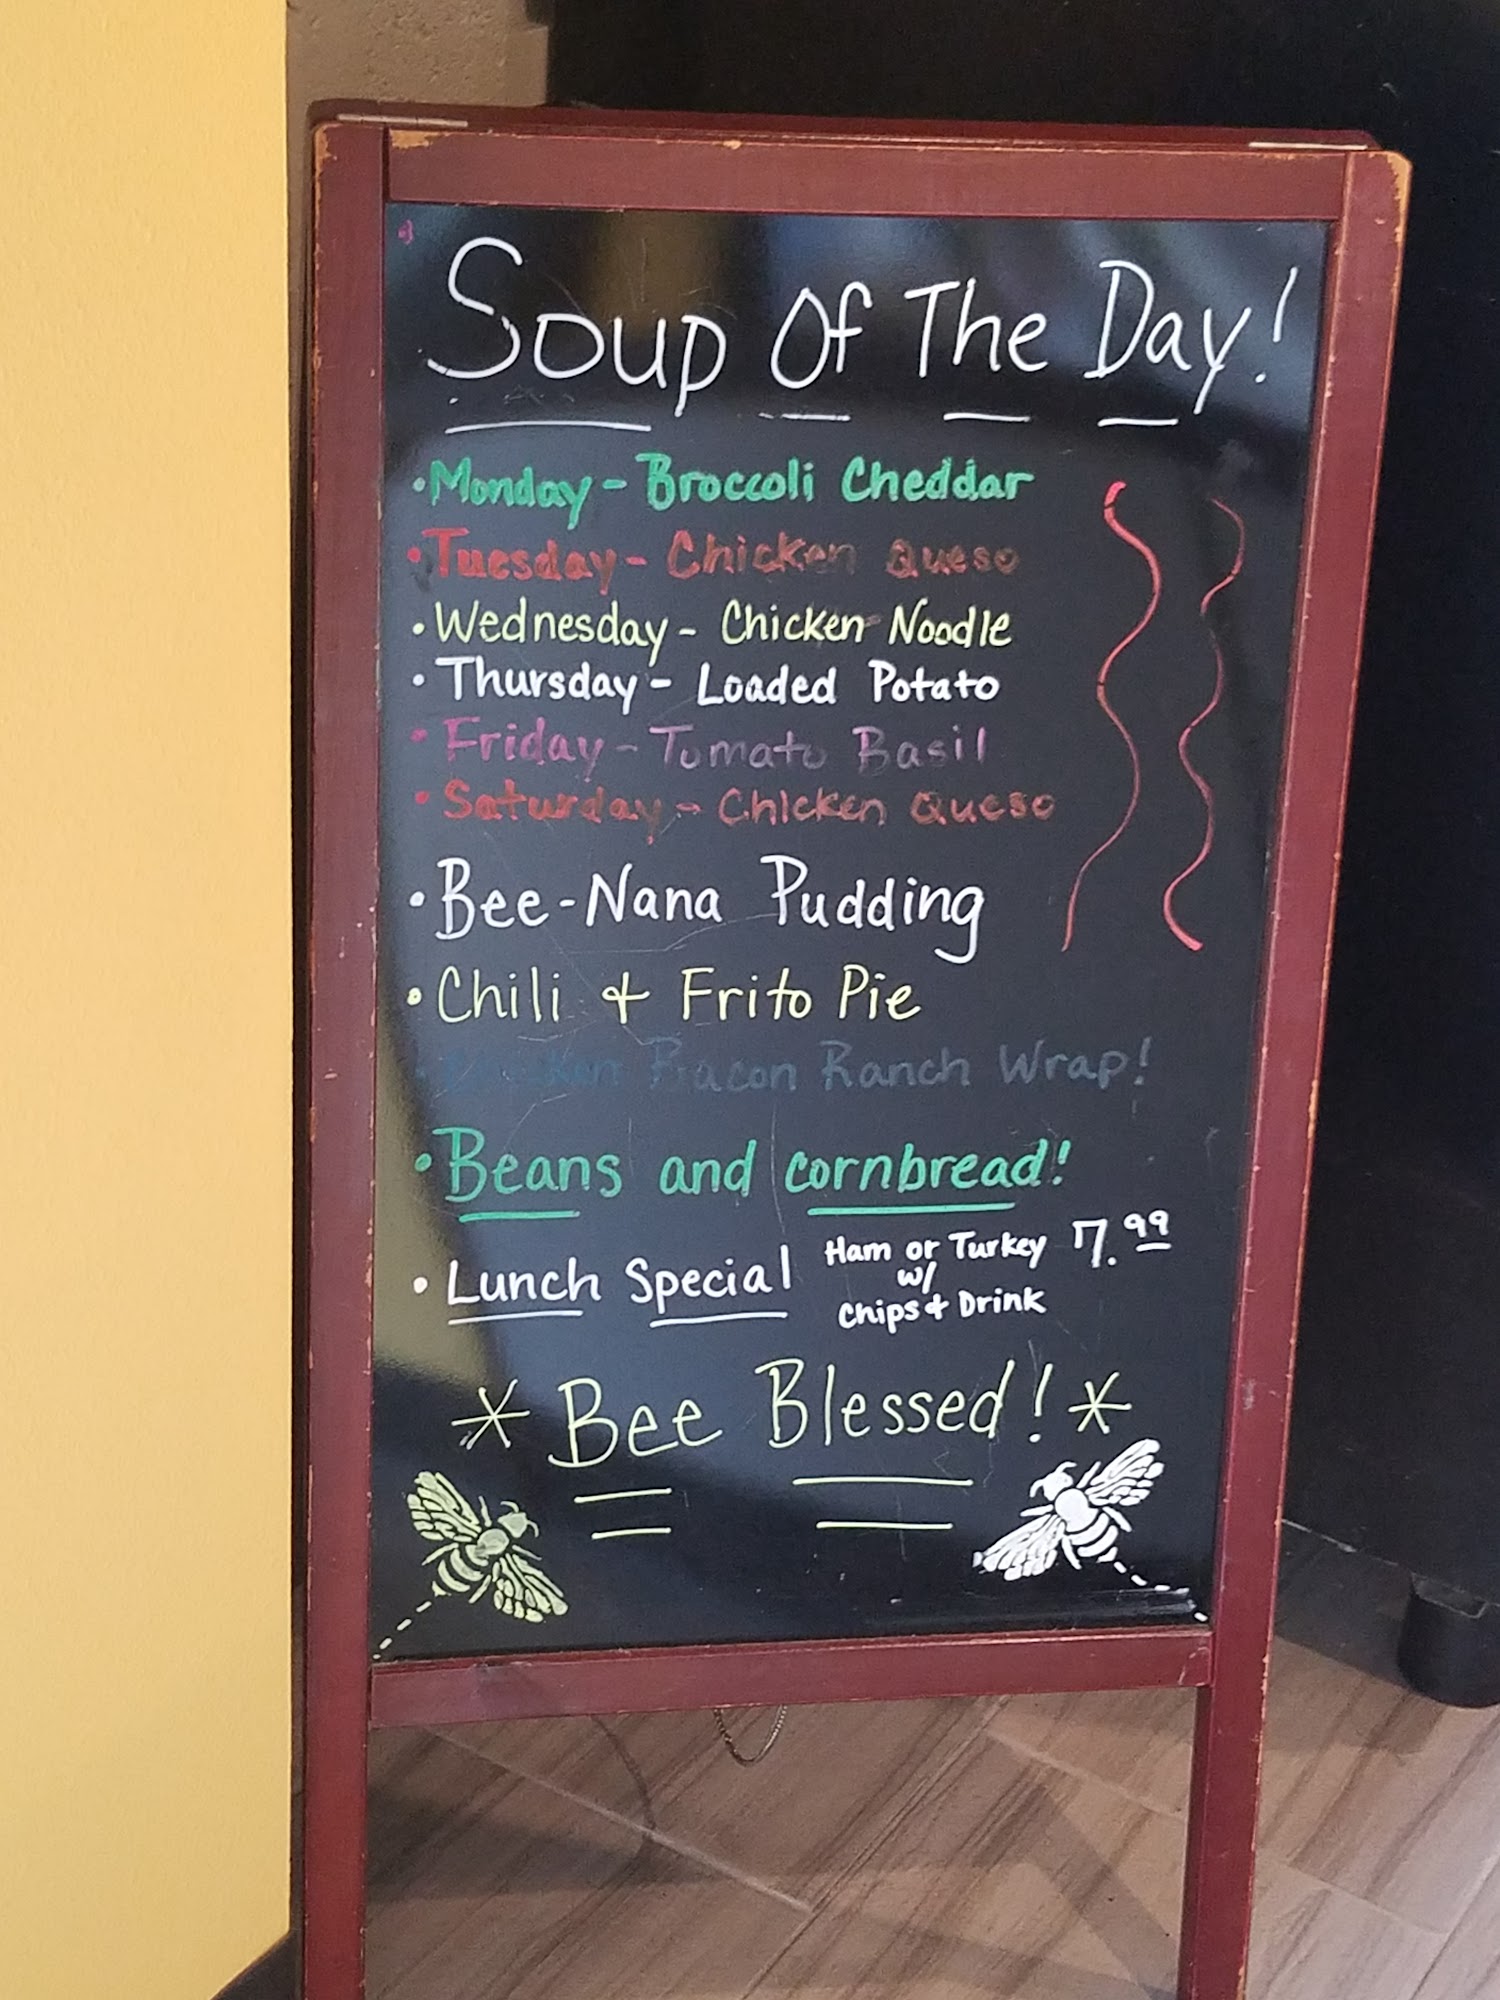 Soup Of The Day!
• Monday - Broccoli Cheddar
• Tuesday - Chicken Queso
• Wednesday - Chicken Noodle
• Thursday - Loaded Potato
• Friday - Tomato Basil
• Saturday - Chicken Queso
• Bee-Nana Pudding
• Chili & Frito Pie
• Chicken Bacon Ranch Wrap!
• Beans and cornbread!
• Lunch Special Ham or Turkey 7.99
w/
Chips & Drink
* Bee Blessed! *